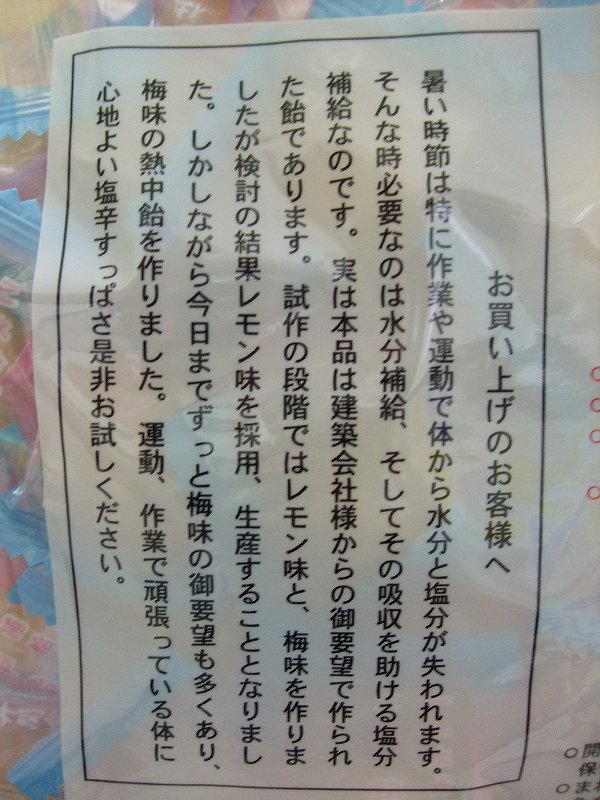 お買い上げのお客様へ
暑い時節は特に作業や運動で体から水分と塩分が失われます。
そんな時必要なのは水分補給、そしてその吸収を助ける塩分
補給なのです。実は本品は建築会社様からの御要望で作られ
た飴であります。試作の段階ではレモン味と、梅味を作りま
したが検討の結果レモン味を採用、生産することとなりまし
た。しかしながら今日までずっと梅味の御要望も多くあり、
梅味の熱中飴を作りました。運動、作業で頑張っている体に
心地よい塩辛すっぱさ是非お試しください。
○開
保
○まれ